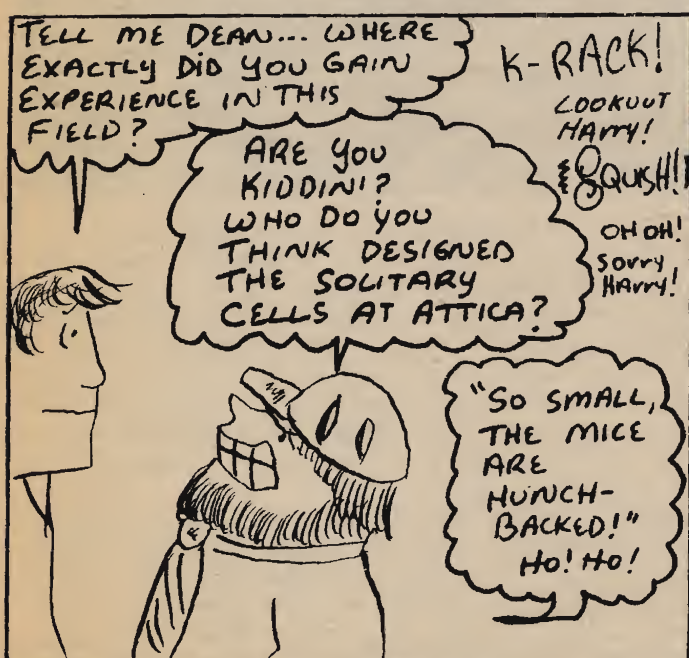 TELL ME DEAN... WHERE
EXACTLY DID YOU GAIN
EXPERIENCE IN THIS
FIELD?
ARE YOU
KIDDIN'?
WHO DO YOU
THINK DESIGNED
THE SOLITARY
CELLS AT ATTICA?
K-RACK!
LOOKOUT
HARRY!
SQUISH!
OH OH!
SORRY
HARRY!
"SO SMALL,
THE MICE
ARE
HUNCH-
BACKED!"
HO! HO!